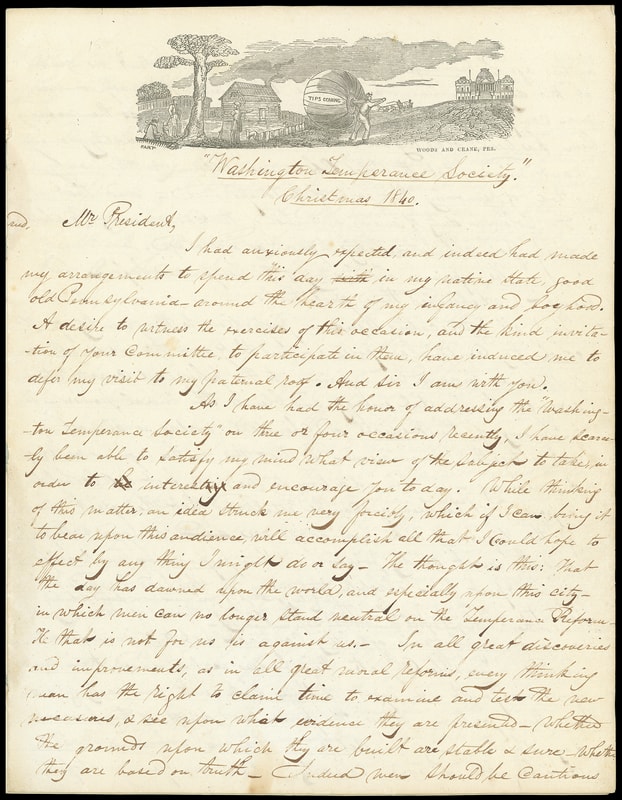 TIPS COMING
WOODS AND CRANE, PRS.
"Washington Temperance Society."
Christmas 1840.
Mr President,
I had anxiously expected, and indeed had made
my arrangements to spend this day with in my native State, good
old Pennsylvania - around the hearth of my infancy and boyhood.
A desire to witness the exercises of this occasion, and the kind invita-
-tion of your Committee, to participate in them, have induced me to
defer my visit to my paternal roof. And Sir I am with you.
As I have had the honor of addressing the "Washing-
-ton Temperance Society" on three or four occasions recently, I have scarce-
-ly been able to satisfy my mind what view of the subject to take, in
order to interest and encourage you to day. While thinking
of this matter, an idea struck me very forcibly, which if I can bring it
to bear upon this audience, will accomplish all that I could hope to
effect by any thing I might do or say - The thought is this: That
the day has dawned upon the world, and especially upon this city -
in which men can no longer stand neutral on the Temperance Reform -
He that is not for us is against us. - In all great discoveries
and improvements, as in all great moral reforms, every thinking
man has the right to claim time to examine and test the new
measures, & see upon what evidence they are presented - whether
the grounds upon which they are built are stable & sure - whether
they are based on truth - Indeed men should be cautious